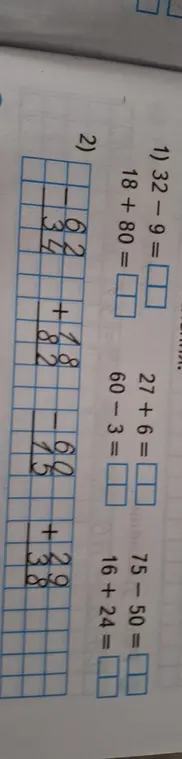 1) 32 − 9 = 27 + 6 = 75 − 50 =
18 + 80 = 60 − 3 = 16 + 24 =
2)
− 62 + 18 − 60 + 29
34 82 15 38